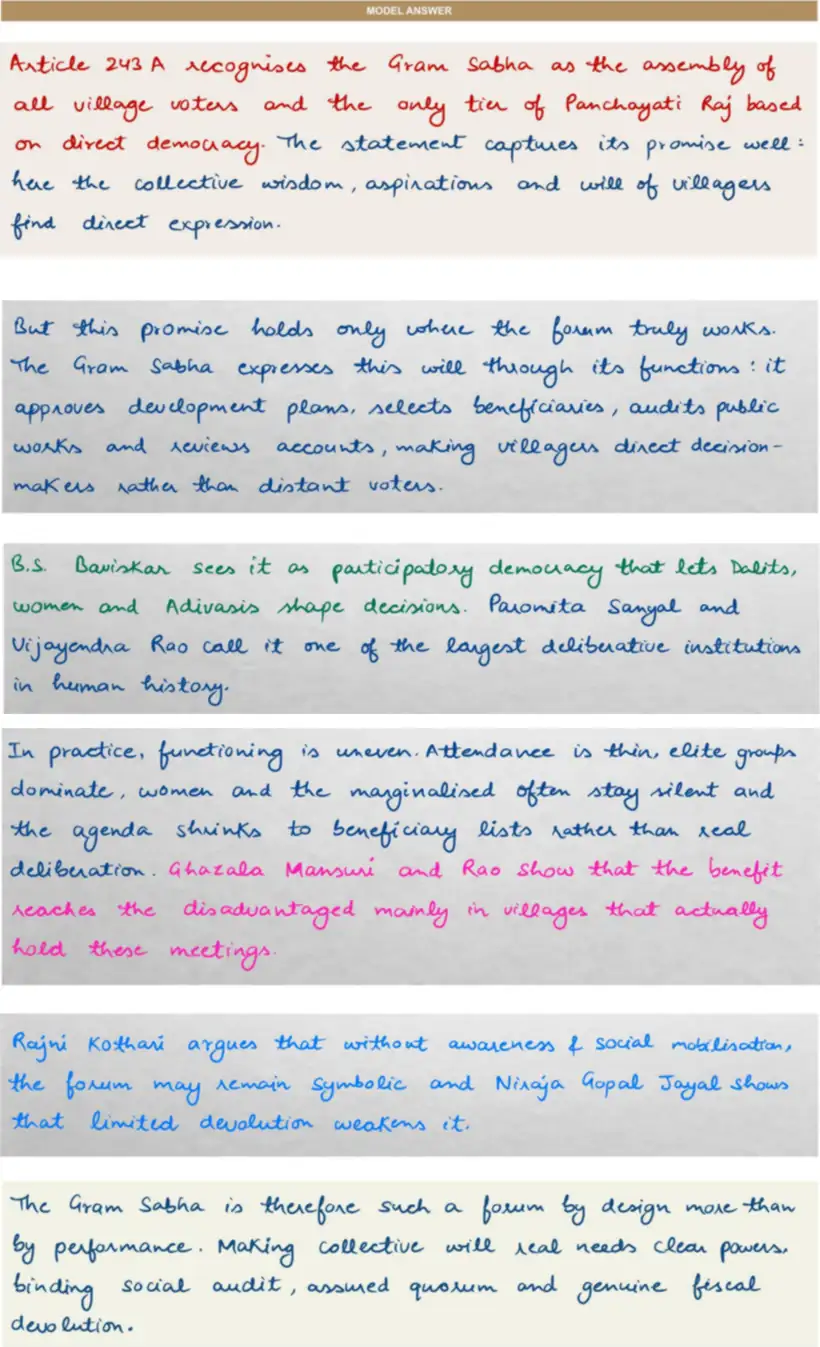 MODEL ANSWER
Article 243 A recognises the Gram Sabha as the assembly of
all village voters and the only tier of Panchayati Raj based
on direct democracy. The statement captures its promise well:
here the collective wisdom, aspirations and will of villagers
find direct expression.
But this promise holds only where the forum truly works.
The Gram Sabha expresses this will through its functions: it
approves development plans, selects beneficiaries, audits public
works and reviews accounts, making villagers direct decision-
makers rather than distant voters.
B.S. Baviskar sees it as participatory democracy that lets Dalits,
women and Adivasis shape decisions. Paromita Sanyal and
Vijayendra Rao call it one of the largest deliberative institutions
in human history.
In practice, functioning is uneven. Attendance is thin, elite groups
dominate, women and the marginalised often stay silent and
the agenda shrinks to beneficiary lists rather than real
deliberation. Ghazala Mansuri and Rao show that the benefit
reaches the disadvantaged mainly in villages that actually
hold these meetings.
Rajni Kothari argues that without awareness & social mobilisation,
the forum may remain symbolic and Niraja Gopal Jayal shows
that limited devolution weakens it.
The Gram Sabha is therefore such a forum by design more than
by performance. Making collective will real needs clear powers,
binding social audit, assured quorum and genuine fiscal
devolution.